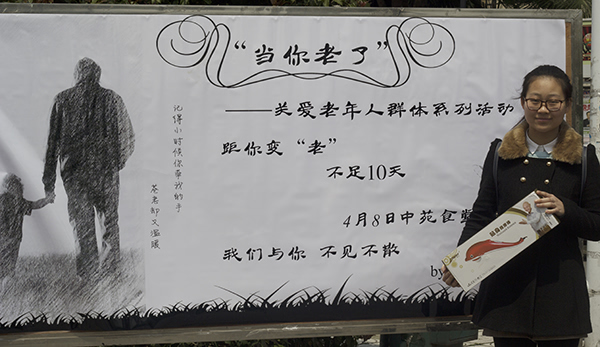 “当你老了”
——关爱老年人群体系列活动
距你变“老”
不足10天
4月8日中苑食堂
我们与你 不见不散
by
记得小时候你牵我的手
苍老却又温暖